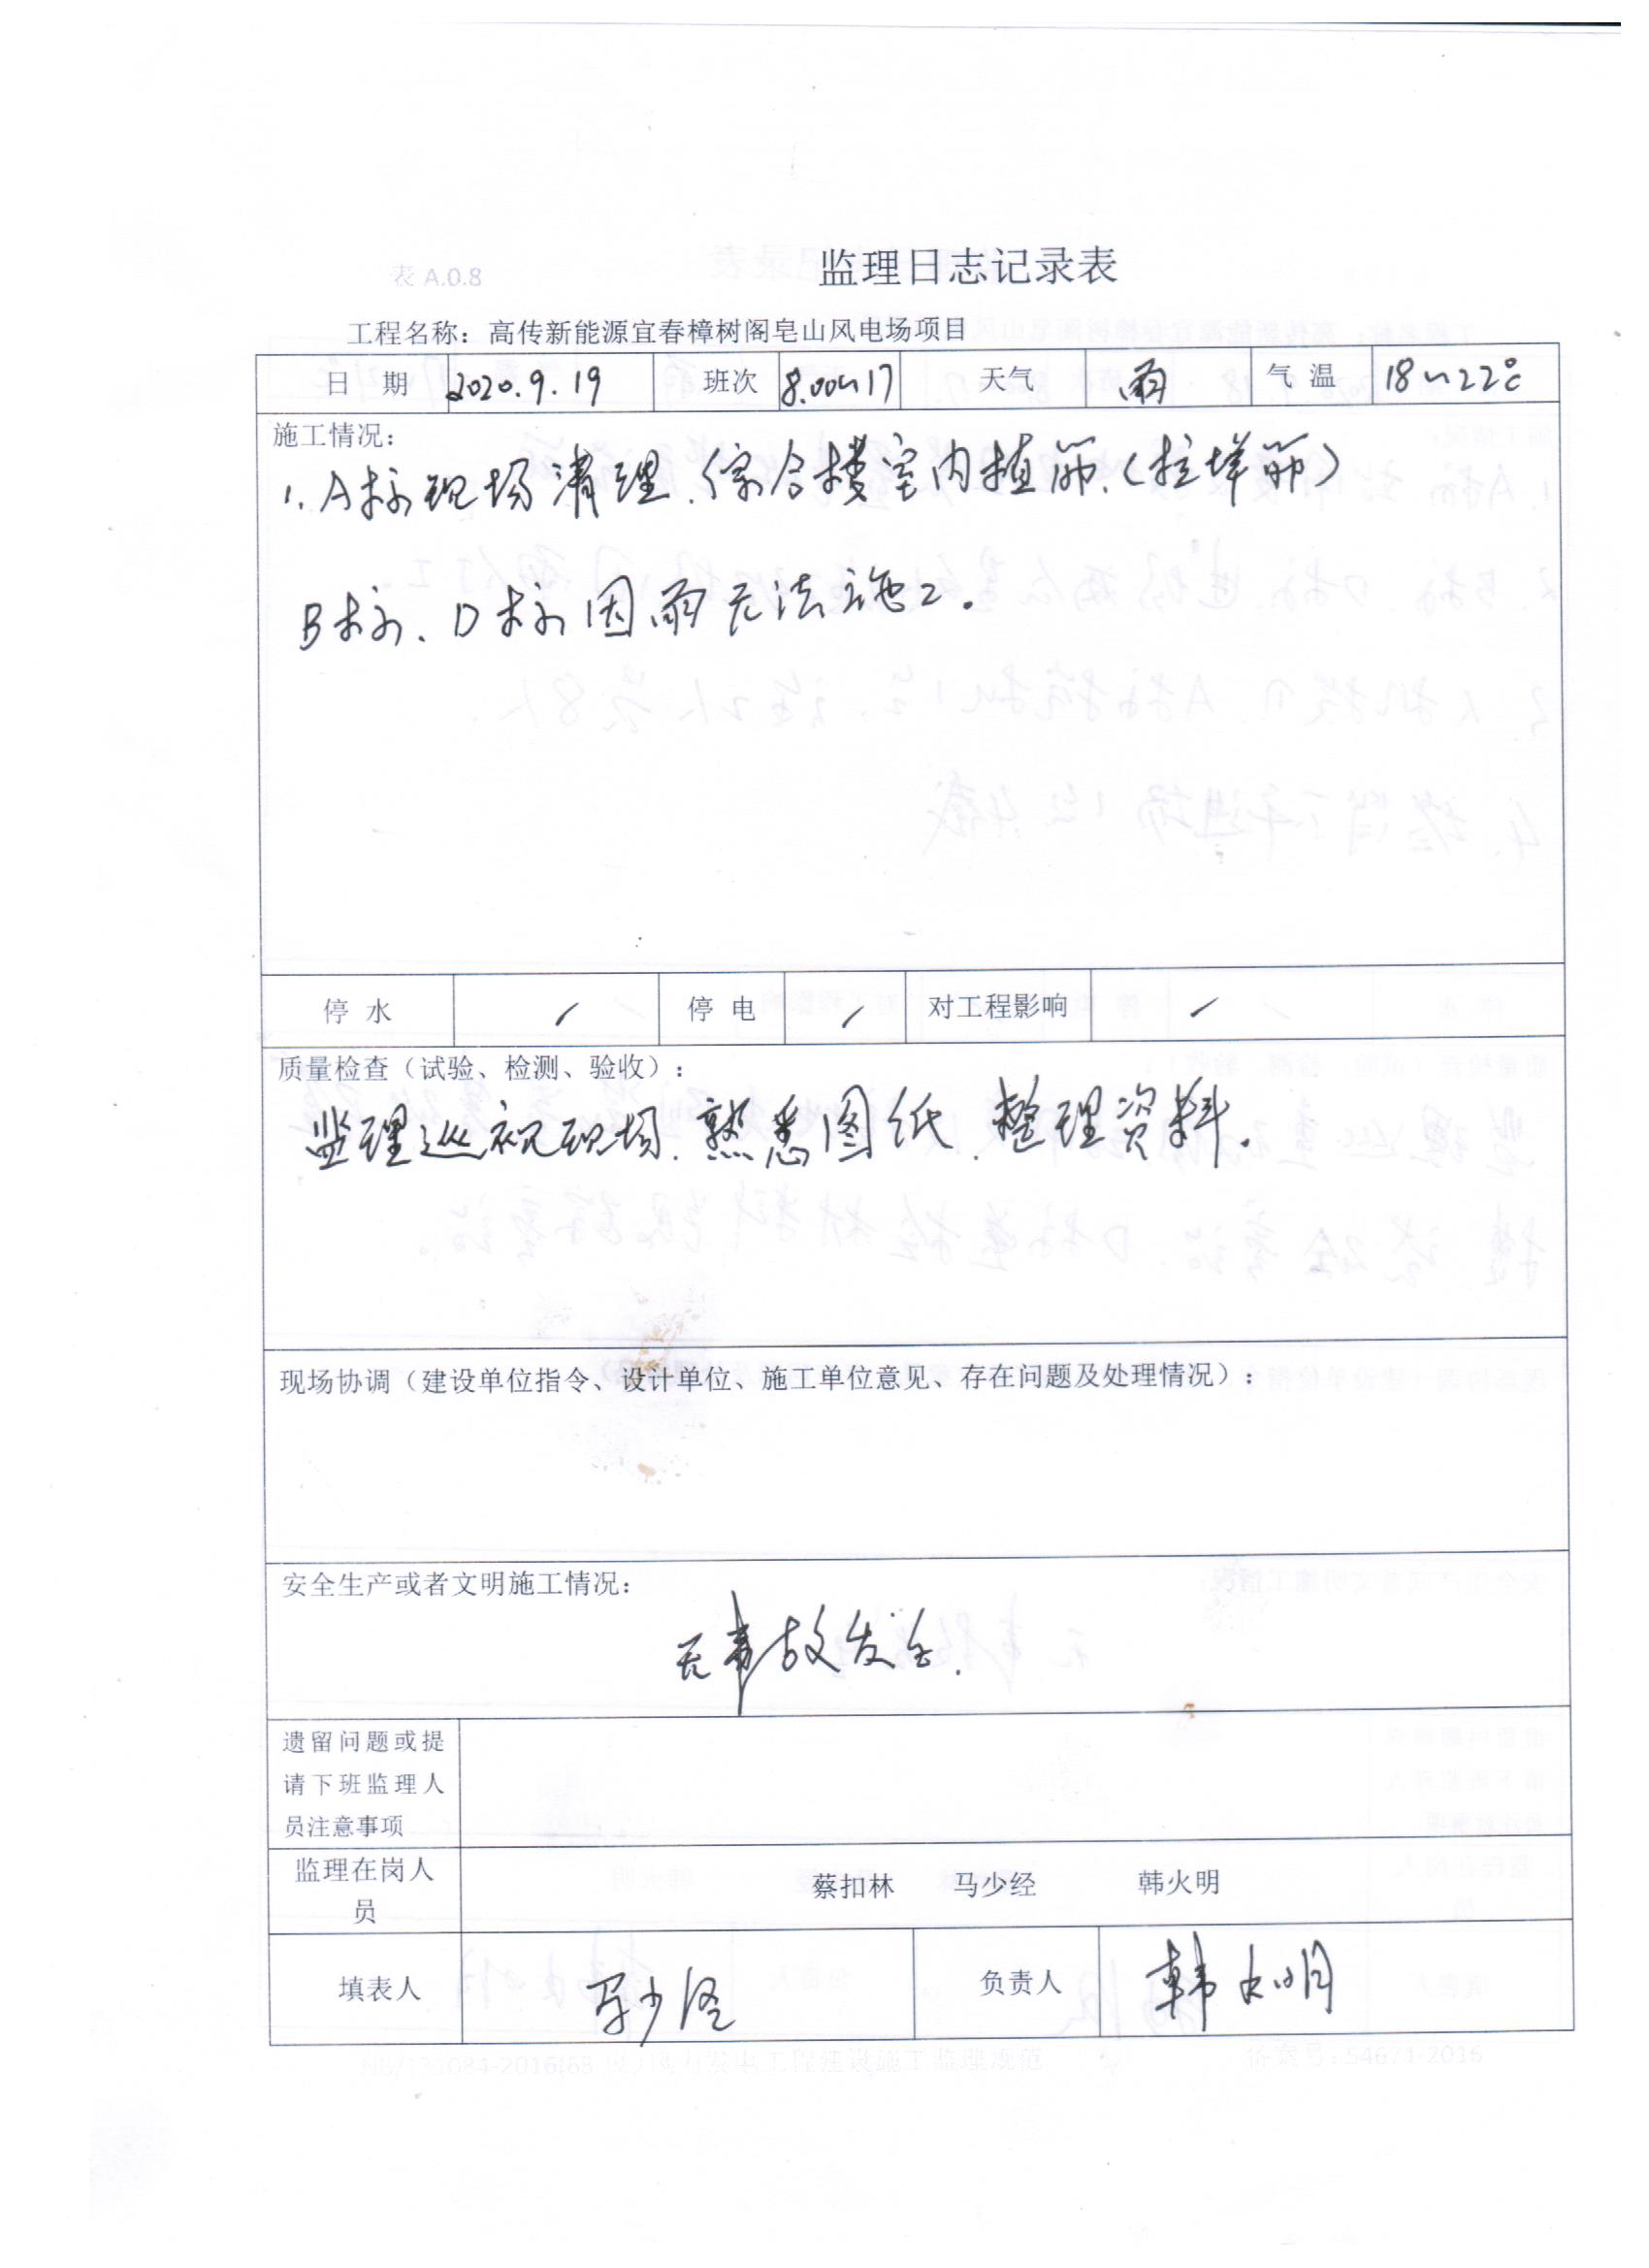 表 A.0.8
监理日志记录表
工程名称：高传新能源宜春樟树阁皂山风电场项目
日 期 2020.9.19 班次 8.00~17 天气 雨 气 温 18~22℃
施工情况：
1. A标现场清理.综合楼室内植筋.(拉墙筋)
B标、D标因雨无法施工.
停 水 / 停 电 / 对工程影响 /
质量检查（试验、检测、验收）：
监理巡视现场.熟悉图纸.整理资料.
现场协调（建设单位指令、设计单位、施工单位意见、存在问题及处理情况）：
安全生产或者文明施工情况：
无事故发生.
遗留问题或提
请下班监理人
员注意事项
监理在岗人
员
蔡扣林 马少经 韩火明
填表人 马少经 负责人 韩火明